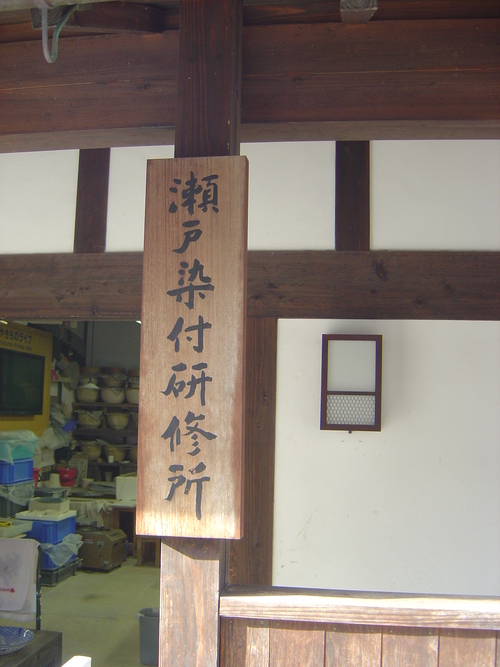 瀬戸染付研修所